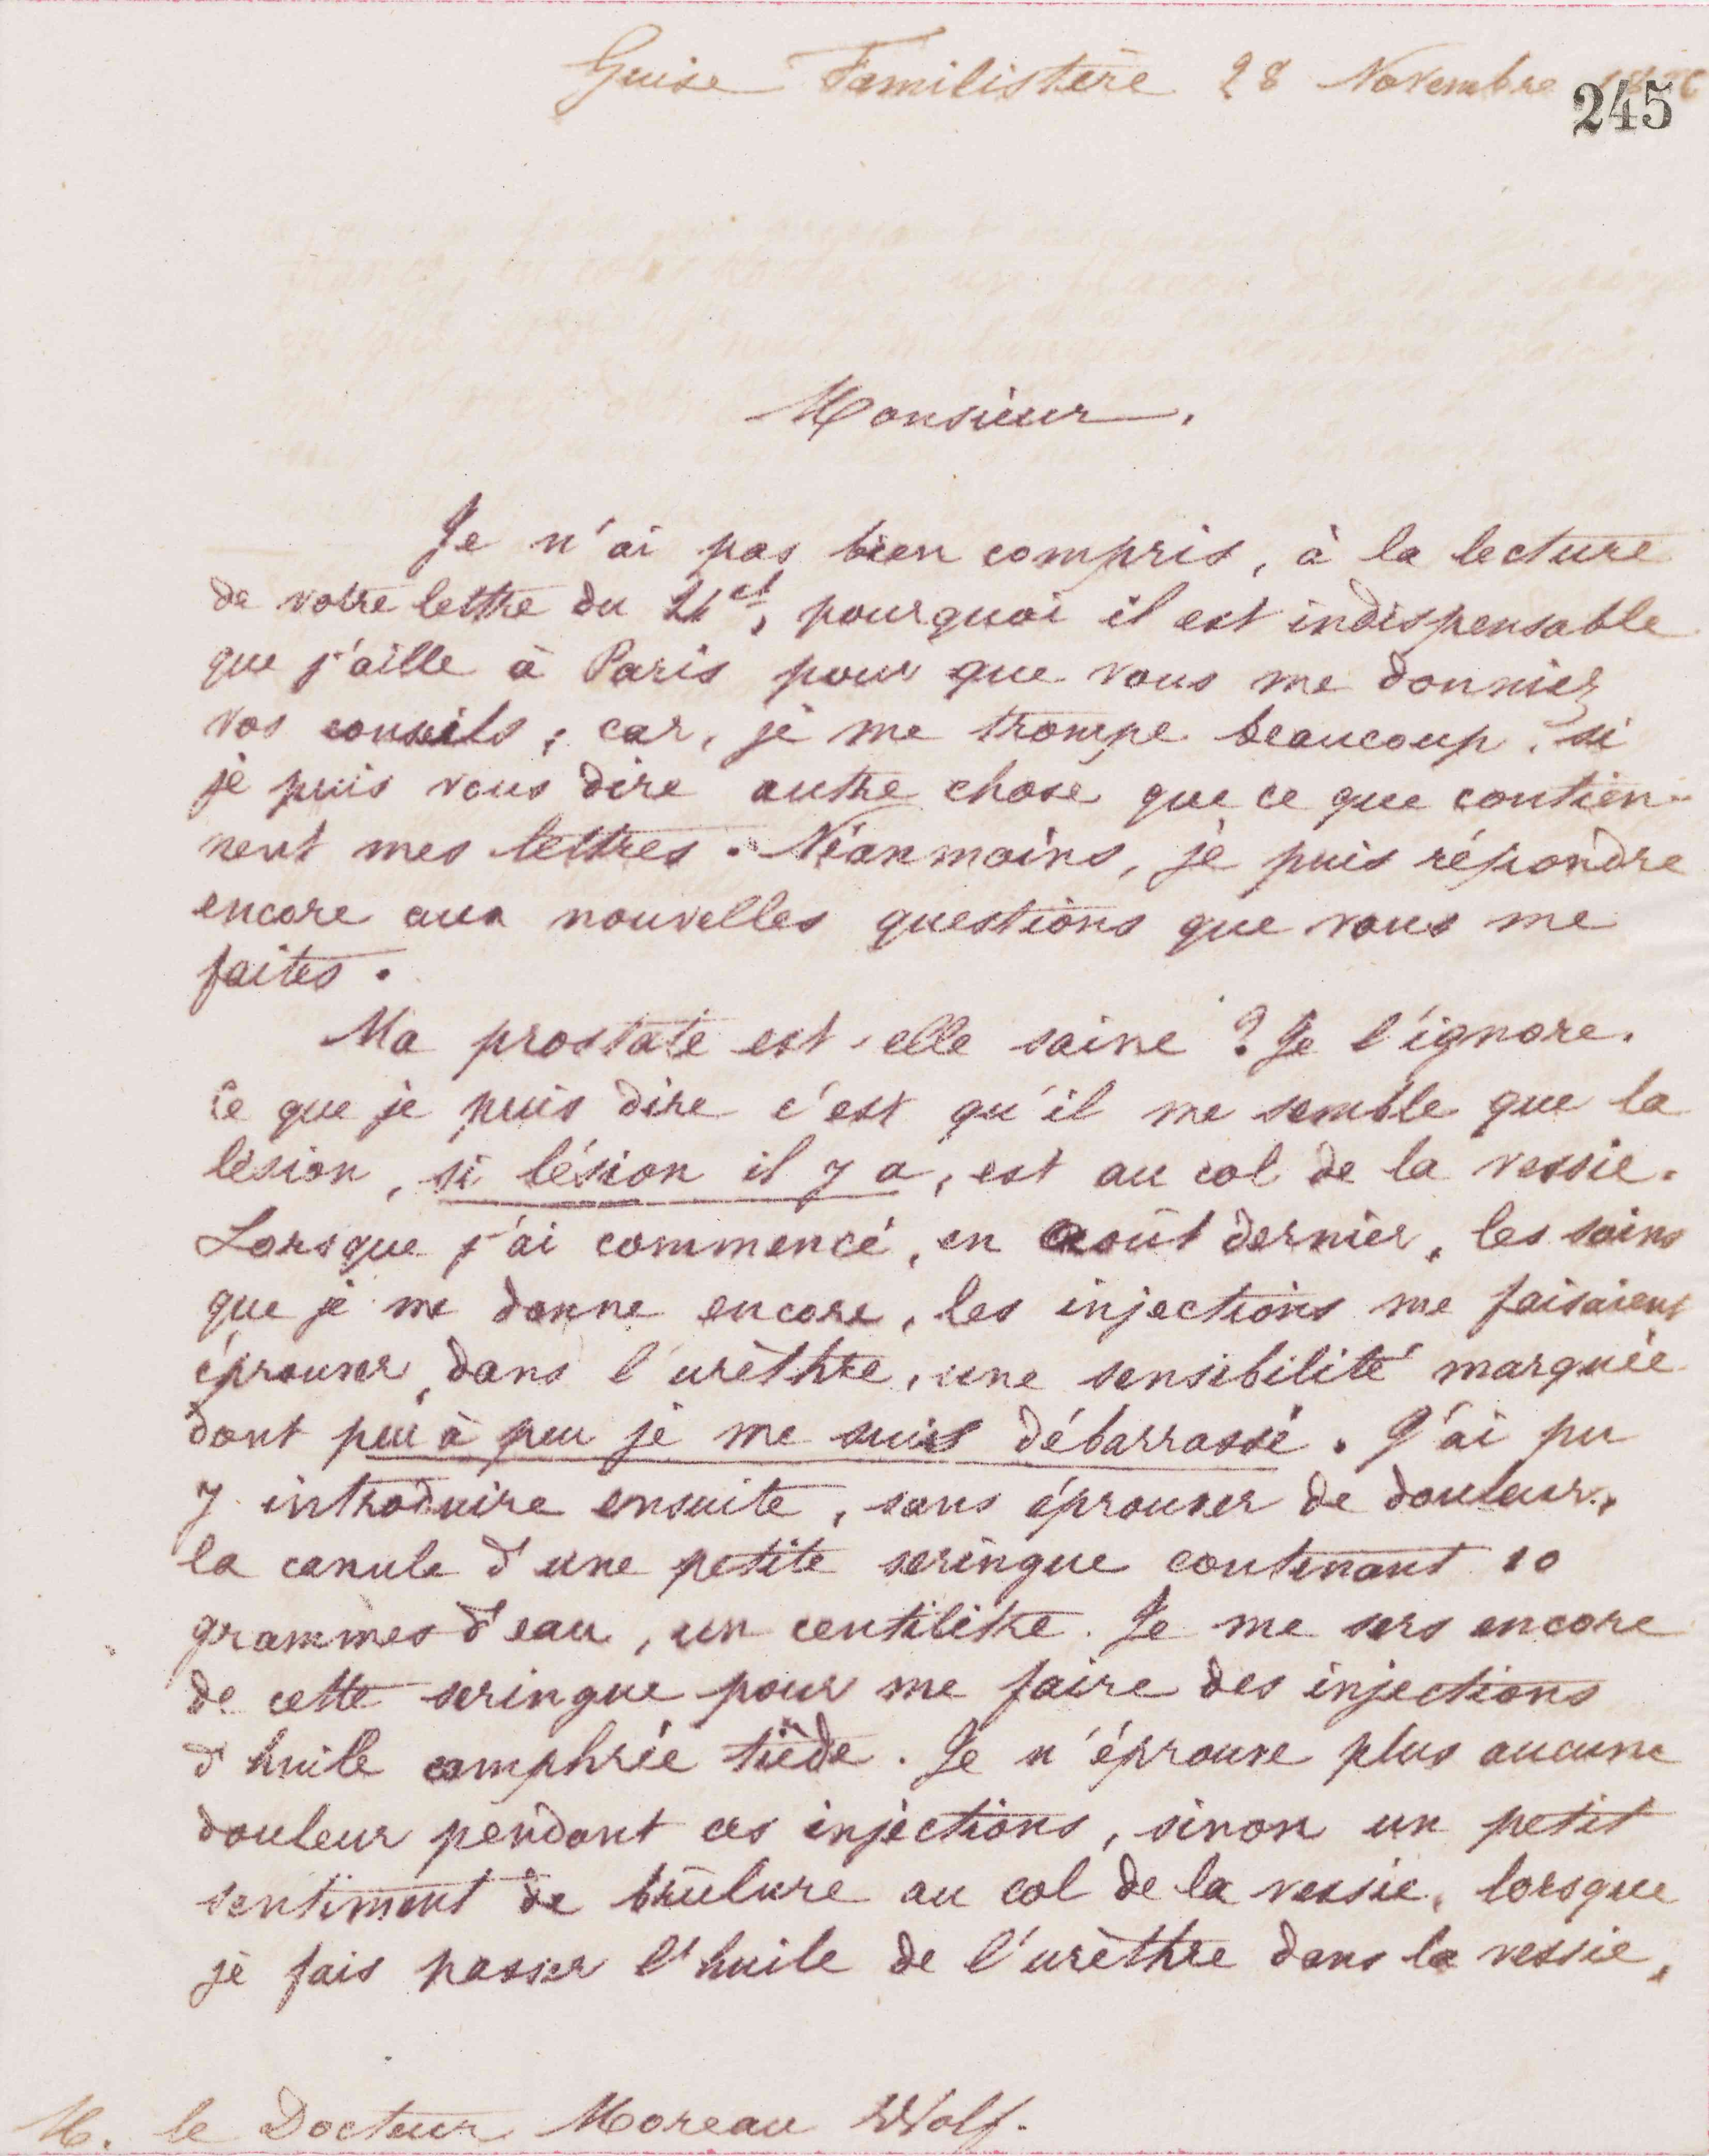 Guise Familistère 28 Novembre
245
Monsieur.
Je n'ai pas bien compris, à la lecture
de votre lettre du ct, pourquoi il est indispensable
que j'aille à Paris pour que vous me donniez
vos conseils ; car, je me trompe beaucoup, si
je puis vous dire autre chose que ce que contien-
nent mes lettres. Néanmoins, je puis répondre
encore aux nouvelles questions que vous me
faites.
Ma prostate est-elle saine ? Je l'ignore.
Ce que je puis dire c'est qu'il me semble que la
lésion, si lésion il y a, est au col de la vessie.
Lorsque j'ai commencé, en août dernier, les soins
que je me donne encore, les injections me faisaient
éprouver, dans l'urèthre, une sensibilité marquée
dont peu à peu je me suis débarrassé. J'ai pu
y introduire ensuite, sans éprouver de douleur,
la canule d'une petite seringue contenant 10
grammes d'eau, un centilitre. Je me sers encore
de cette seringue pour me faire des injections
d'huile camphrée tiède. Je n'éprouve plus aucune
douleur pendant ces injections, sinon un petit
sentiment de brûlure au col de la vessie, lorsque
je fais passer l'huile de l'urèthre dans la vessie,
M. le Docteur Moreau Wolf.